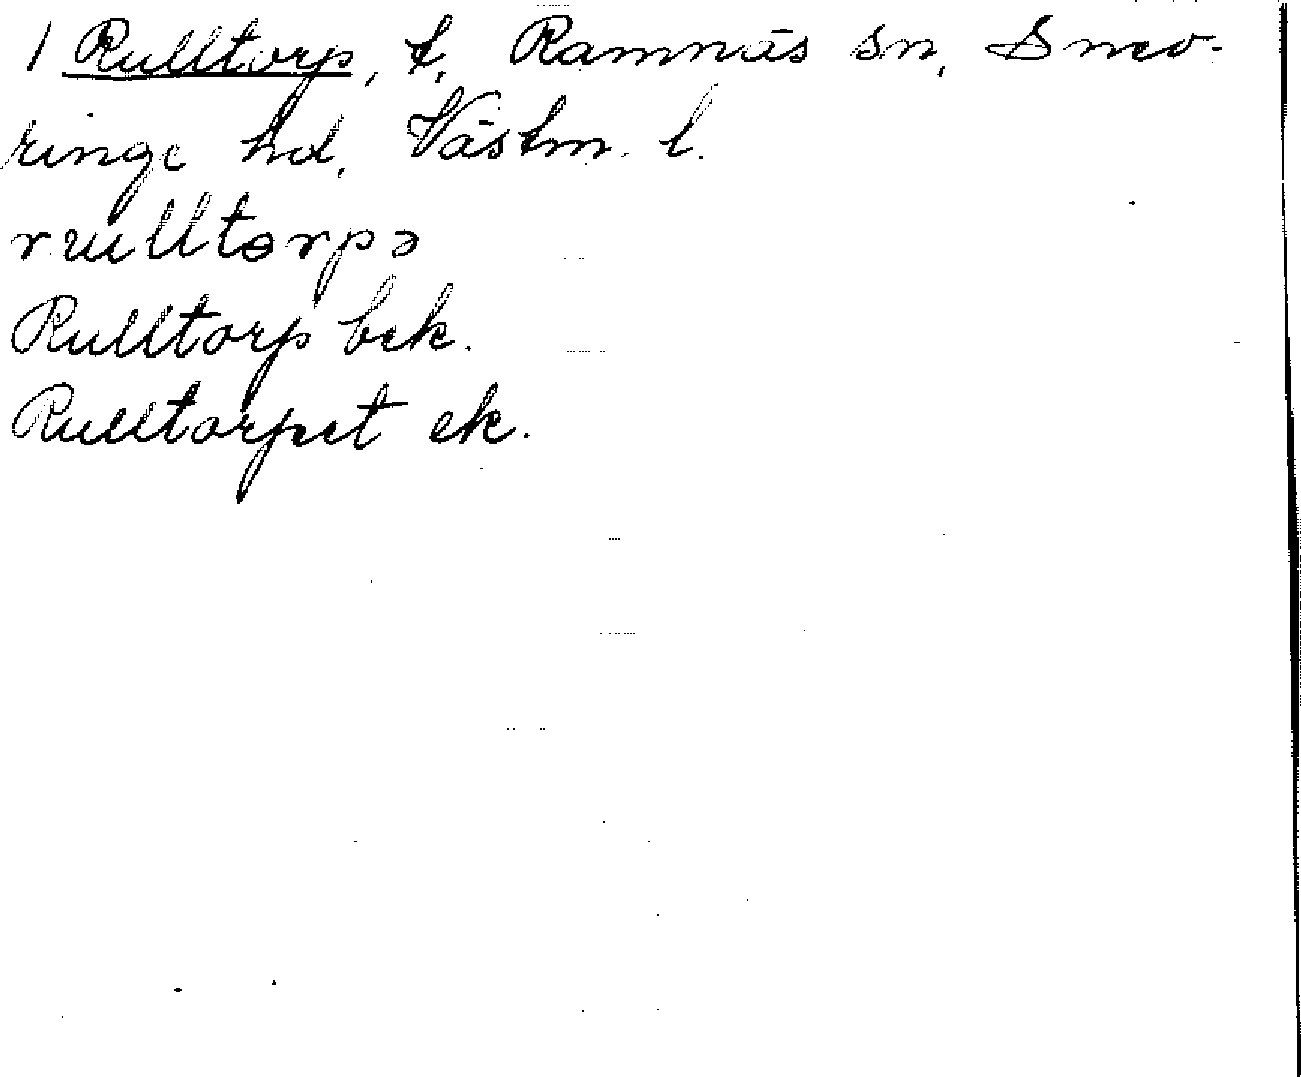 1 Rulltorp, t, Ramnäs sn, Snev-
ringe hd, Västm. l.
rulltorpə
Rulltorp bek.
Rulltorpet ek.